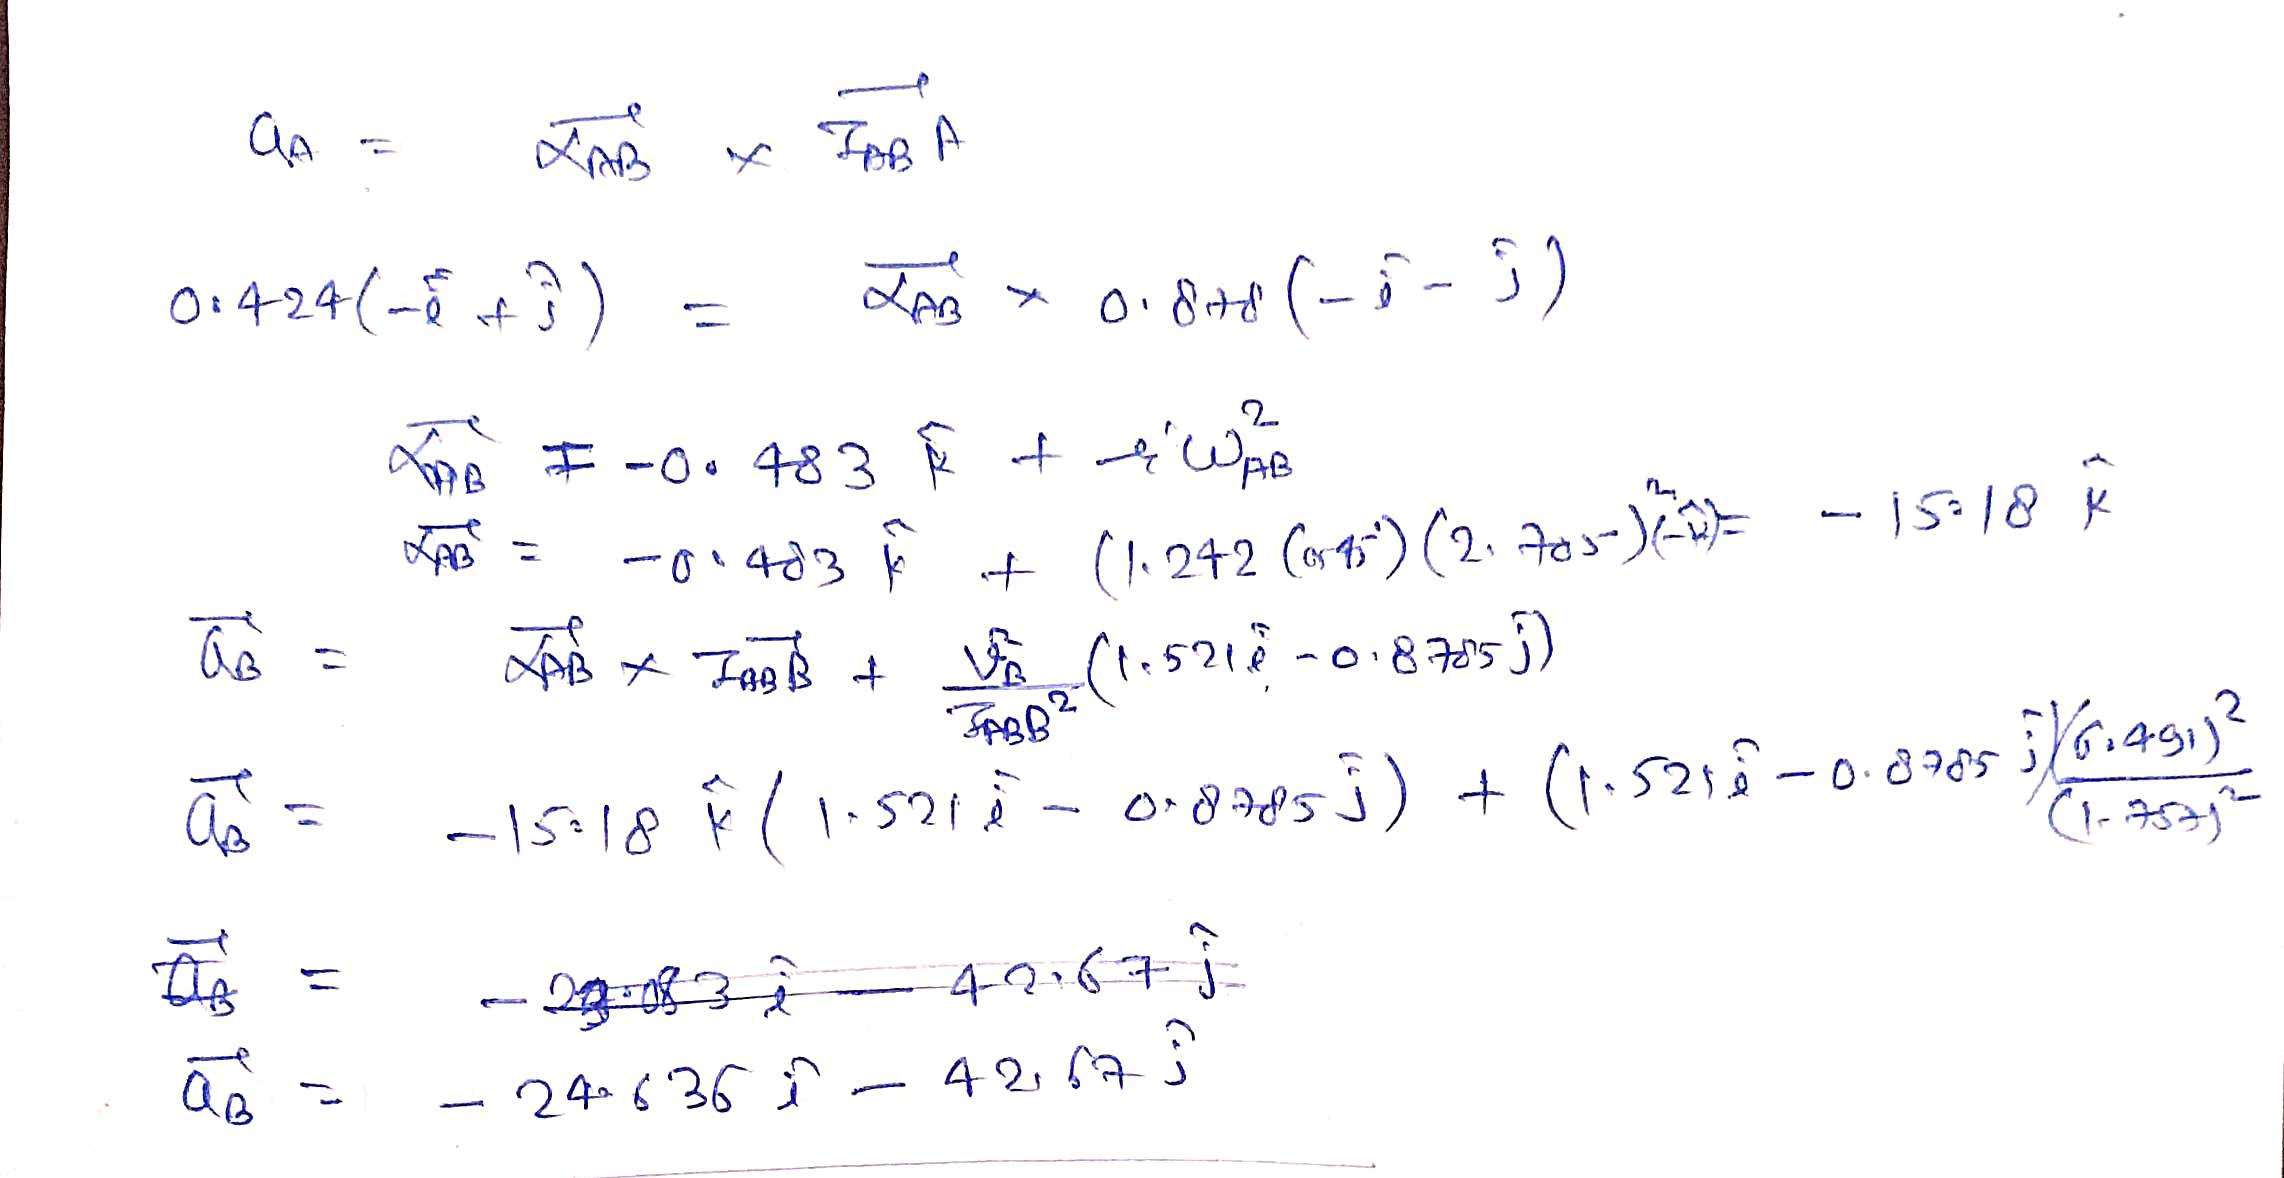 a_A = α_AB × I_AB A
0.424(-î + ĵ) = α_AB × 0.878(-î - ĵ)
α_AB = -0.483 k̂ + ω²_AB
α_AB = -0.483 k̂ + (1.242 (2.705)² = -15.18 k̂
a_B = α_AB × I_AB B + V_B² / I_AB B² (1.521î - 0.8785ĵ)
a_B = -15.18 k̂ (1.521î - 0.8785ĵ) + (1.521î - 0.8785ĵ)(6.491)² / (1.757)²
a_B = - 42.67 ĵ
a_B = -24.636 î - 42.67 ĵ